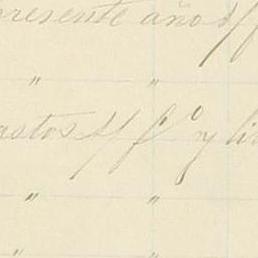 presente año s/f
" "
astos s/ fº y li
" "
" "